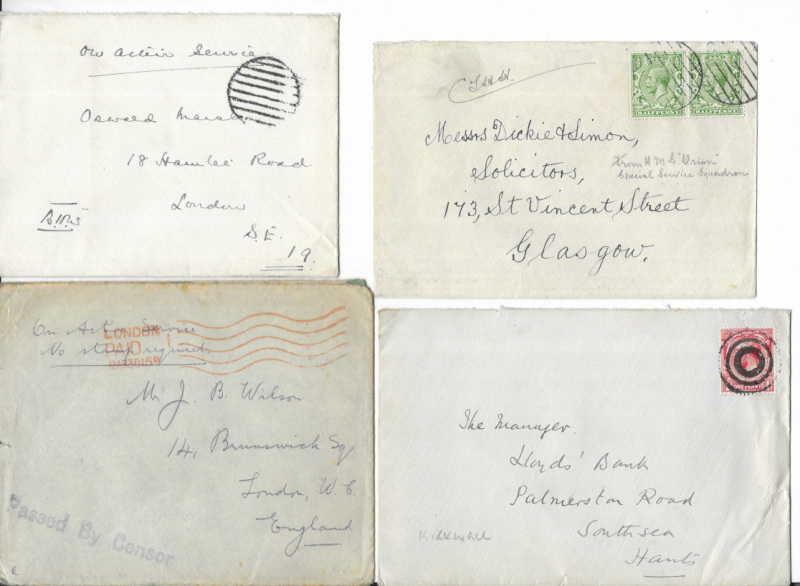 On Active Service
18 Road
London
S.E.
19.
HALFPENNY HALFPENNY
Messrs Dickie & Simon,
Solicitors,
From H M S "Orion"
Special Service Squadron
173, St Vincent Street
Glasgow.
On Act Service
No stamp required
LONDON
PAID
Mr J. B. Wilson
14, Brunswick Sq
London, W.C.
England
Passed By Censor
ONE PENNY
The Manager
Lloyds' Bank
Palmerston Road
Southsea
Hants
Kirkwall